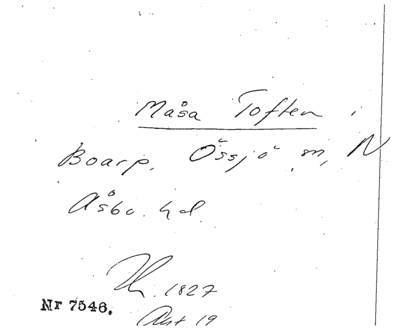 Måsa Toften i
Boarp. Össjö sn, N
Åsbo hd.
1827
Nr 7546. Akt 19